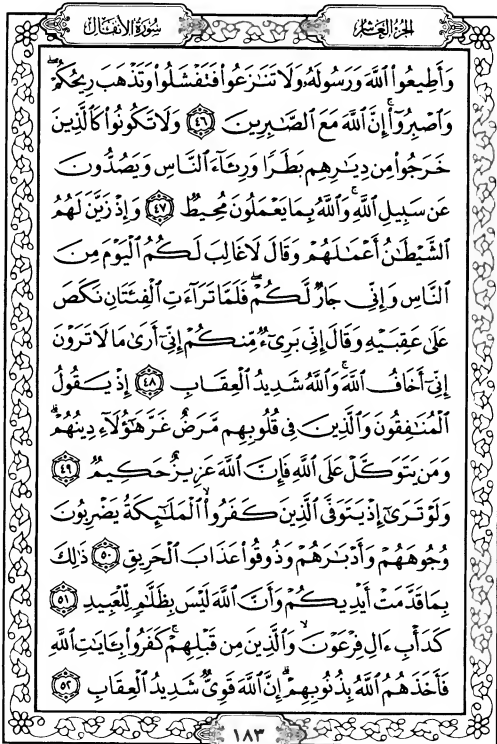 سُورَةُ الأَنفَال
الجُزءُ العَاشِرُ
وَأَطِيعُوا۟ ٱللَّهَ وَرَسُولَهُۥ وَلَا تَنَٰزَعُوا۟ فَتَفْشَلُوا۟ وَتَذْهَبَ رِيحُكُمْ ۖ
وَٱصْبِرُوٓا۟ ۚ إِنَّ ٱللَّهَ مَعَ ٱلصَّٰبِرِينَ ٤٦ وَلَا تَكُونُوا۟ كَٱلَّذِينَ
خَرَجُوا۟ مِن دِيَٰرِهِم بَطَرًا وَرِئَآءَ ٱلنَّاسِ وَيَصُدُّونَ
عَن سَبِيلِ ٱللَّهِ ۚ وَٱللَّهُ بِمَا يَعْمَلُونَ مُحِيطٌ ٤٧ وَإِذْ زَيَّنَ لَهُمُ
ٱلشَّيْطَٰنُ أَعْمَٰلَهُمْ وَقَالَ لَا غَالِبَ لَكُمُ ٱلْيَوْمَ مِنَ
ٱلنَّاسِ وَإِنِّى جَارٌ لَّكُمْ ۖ فَلَمَّا تَرَآءَتِ ٱلْفِئَتَانِ نَكَصَ
عَلَىٰ عَقِبَيْهِ وَقَالَ إِنِّى بَرِىٓءٌ مِّنكُمْ إِنِّىٓ أَرَىٰ مَا لَا تَرَوْنَ
إِنِّىٓ أَخَافُ ٱللَّهَ ۚ وَٱللَّهُ شَدِيدُ ٱلْعِقَابِ ٤٨ إِذْ يَقُولُ
ٱلْمُنَٰفِقُونَ وَٱلَّذِينَ فِى قُلُوبِهِم مَّرَضٌ غَرَّ هَٰٓؤُلَآءِ دِينُهُمْ ۗ
وَمَن يَتَوَكَّلْ عَلَى ٱللَّهِ فَإِنَّ ٱللَّهَ عَزِيزٌ حَكِيمٌ ٤٩
وَلَوْ تَرَىٰٓ إِذْ يَتَوَفَّى ٱلَّذِينَ كَفَرُوا۟ ۙ ٱلْمَلَٰٓئِكَةُ يَضْرِبُونَ
وُجُوهَهُمْ وَأَدْبَٰرَهُمْ وَذُوقُوا۟ عَذَابَ ٱلْحَرِيقِ ٥٠ ذَٰلِكَ
بِمَا قَدَّمَتْ أَيْدِيكُمْ وَأَنَّ ٱللَّهَ لَيْسَ بِظَلَّٰمٍ لِّلْعَبِيدِ ٥١
كَدَأْبِ ءَالِ فِرْعَوْنَ ۙ وَٱلَّذِينَ مِن قَبْلِهِمْ ۚ كَفَرُوا۟ بِـَٔايَٰتِ ٱللَّهِ
فَأَخَذَهُمُ ٱللَّهُ بِذُنُوبِهِمْ ۗ إِنَّ ٱللَّهَ قَوِىٌّ شَدِيدُ ٱلْعِقَابِ ٥٢
١٨٣